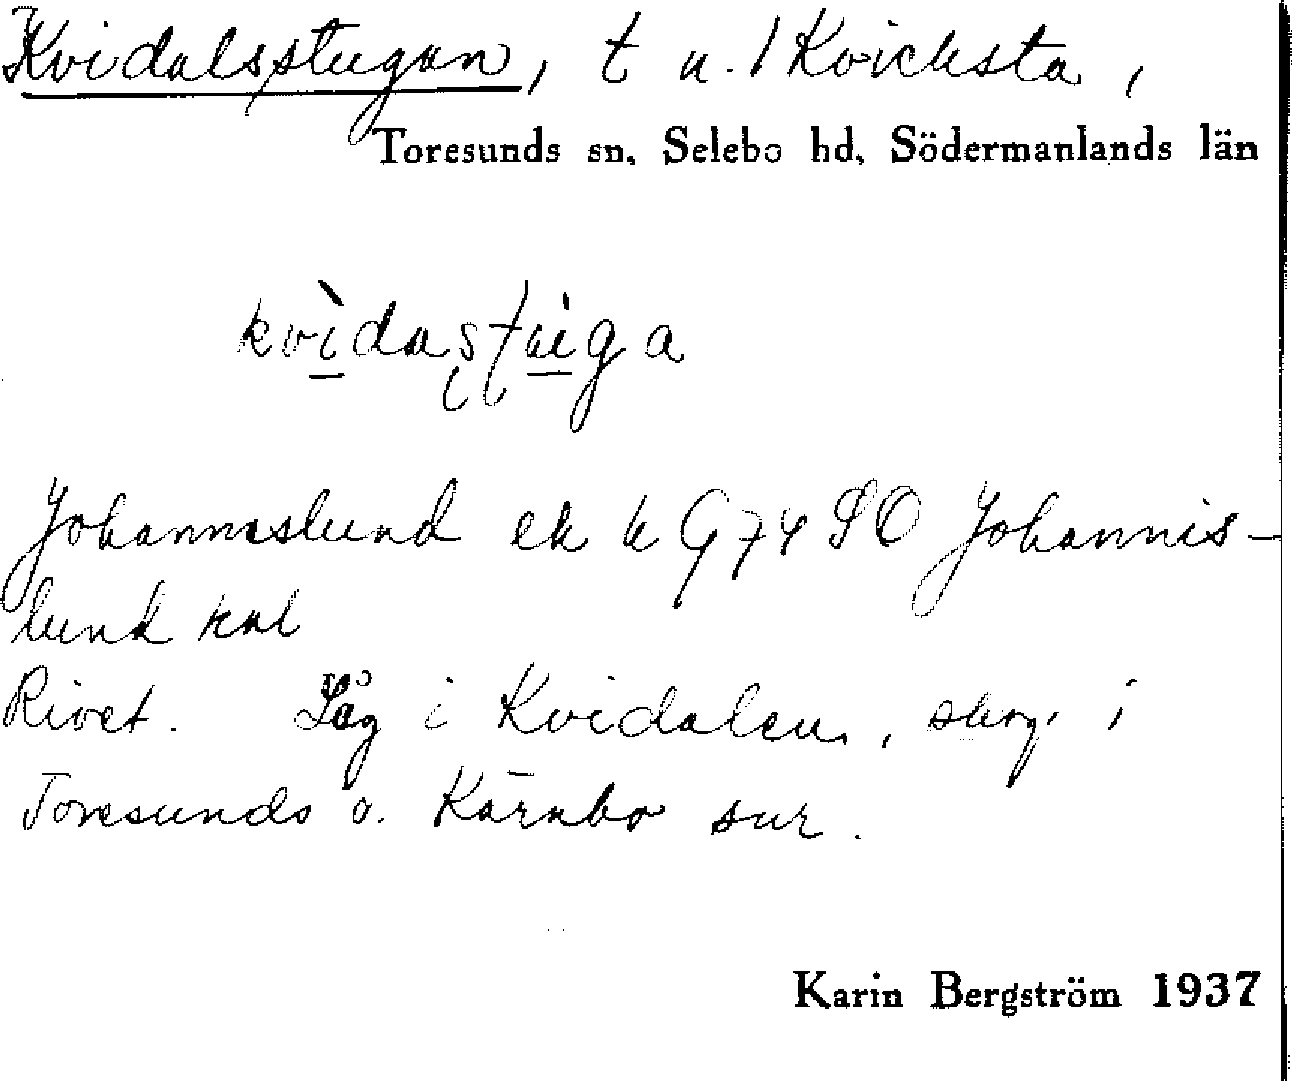 Kvidalsstugan, t u. 1 Kvicksta,
Toresunds sn, Selebo hd, Södermanlands län
kvìdastu̇ga
Johanneslund ek k G74 SO Johannis-
lund kal
Rivet. Låg i Kvidalen, skog i
Toresunds o. Kärnbo snr.
Karin Bergström 1937